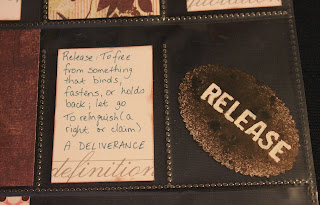 Release: To free
from something
that binds,
fastens, or holds
back; let go
To relinquish (a
right or claim)
A DELIVERANCE
definition
RELEASE